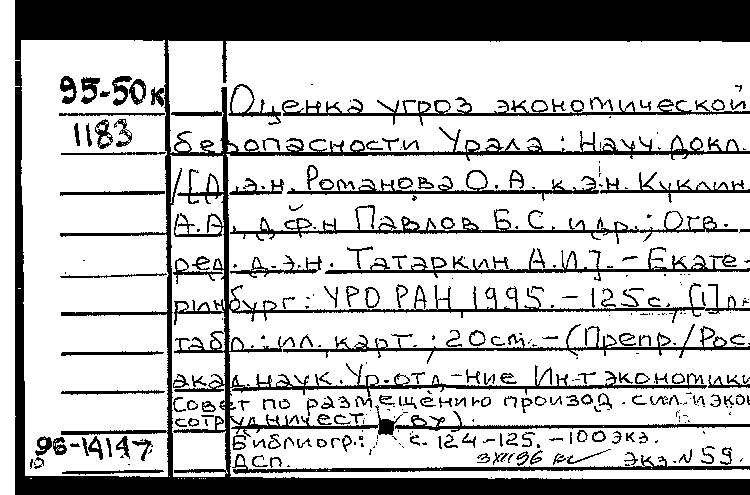 95-50к
Оценка угроз экономической
1183
безопасности Урала : Науч. докл.
/[Д.э.н. Романова О.А., к.э.н. Куклин
А.А., д.ф.н Павлов Б.С. и др.; Отв.
ред. д.э.н. Татаркин А.И.]. - Екате-
ринбург : УРО РАН, 1995. - 125 с., [1] л.
табл. : ил., карт. ; 20 см. - (Препр./Рос.
акад. наук. Ур. отд-ние Ин-т экономики
Совет по размещению производ. сил и экон
сотрудничест. ву).
Библиогр.: с. 124-125. - 100 экз.
96-14147
ДСП. Экз. N 59.